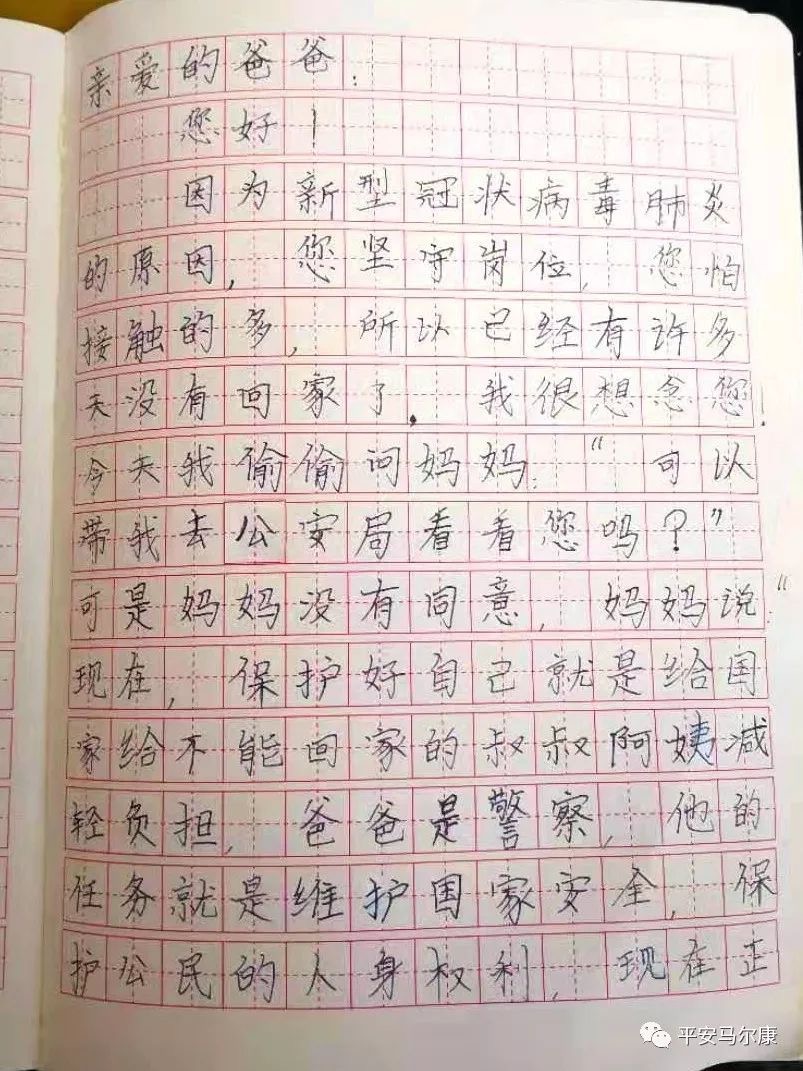 亲爱的爸爸:
您好!
因为新型冠状病毒肺炎
的原因,您坚守岗位,您怕
接触的多,所以已经有许多
天没有回家了,我很想念您.
今天我偷偷问妈妈:“可以
带我去公安局看看您吗?”
可是妈妈没有同意,妈妈说:“
现在,保护好自己就是给国
家给不能回家的叔叔阿姨减
轻负担,爸爸是警察,他的
任务就是维护国家安全,保
护公民的人身权利,现在正
平安马尔康